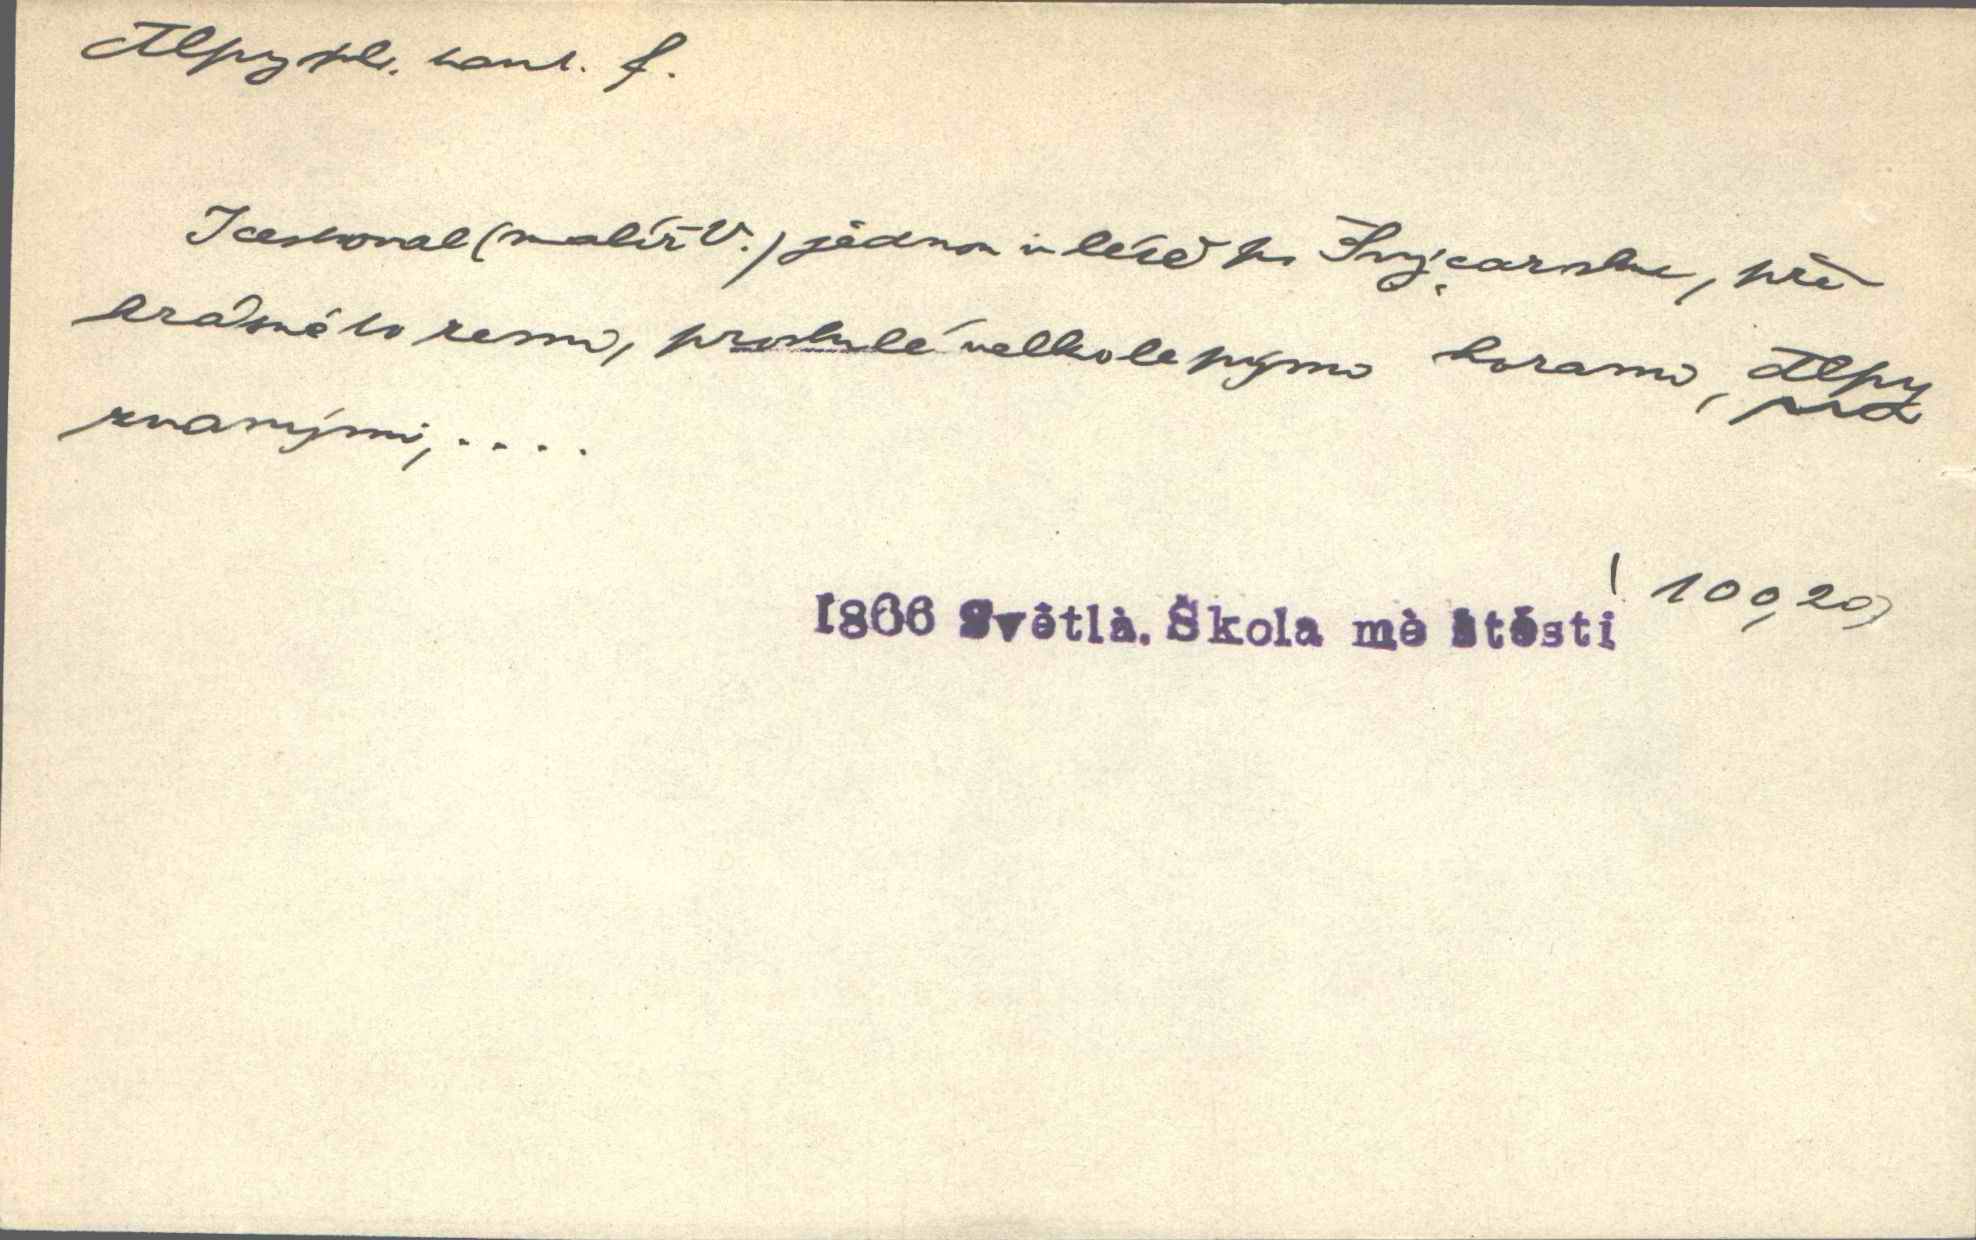 Alpy pl. tant. f.
Icestoval (malíř V.) jednou v létě po Švýcarsku, pře
krásné to zemi, proslulé velkolepými horami, Alpy
zvanými, ....
1866 Světlà. Škola mè štěsti (100, 20)